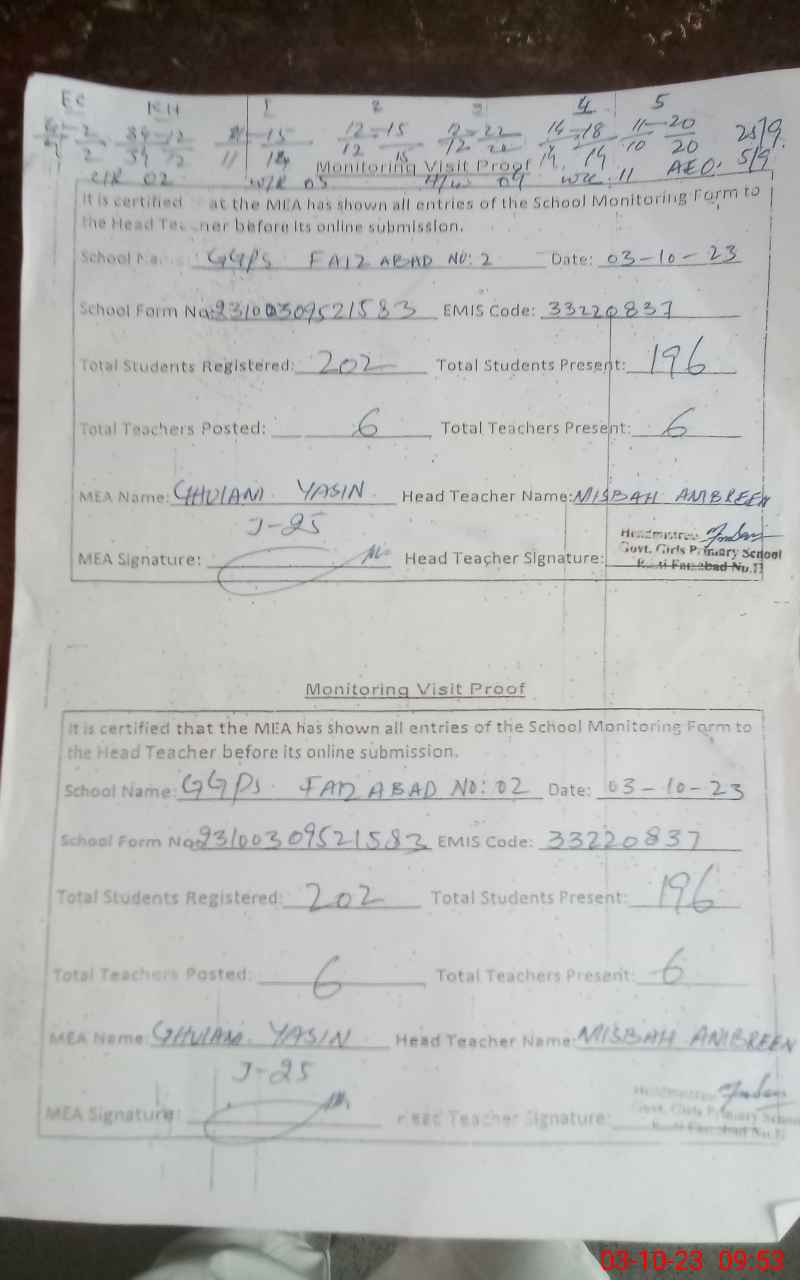 Ec KH 1 2 3 4 5
12-15 12-22 14-18 11-20 25/9
12 15 12 22 14 14 10 20 5/9
Monitoring Visit Proof AEO.
02 W/R 05 H/W 09 11
It is certified at the MEA has shown all entries of the School Monitoring Form to
the Head before its online submission.
School GGPS FAIZ ABAD NO: 2 Date: 03-10-23
School Form No: 93100309521583 EMIS Code: 33220837
Total Students Registered: 202 Total Students Present: 196
Total Teachers Posted: 6 Total Teachers Present: 6
MEA Name: GHULAM YASIN Head Teacher Name: MISBAH AMBREEN
J-25
Headmistress
MEA Signature: Head Teacher Signature: Govt. Girls Primary School
Faizabad No.II
Monitoring Visit Proof
It is certified that the MEA has shown all entries of the School Monitoring Form to
the Head Teacher before its online submission.
School Name: GGPS FAIZ ABAD NO: 02 Date: 03-10-23
School Form No: 93100309521583 EMIS Code: 33220837
Total Students Registered: 202 Total Students Present: 196
Total Teachers Posted: 6 Total Teachers Present: 6
MEA Name: GHULAM YASIN Head Teacher Name: MISBAH AMBREEN
J-25
Headmistress
MEA Signature: Head Teacher Signature: Govt. Girls Primary School
Faizabad No.II
03-10-23 09:53